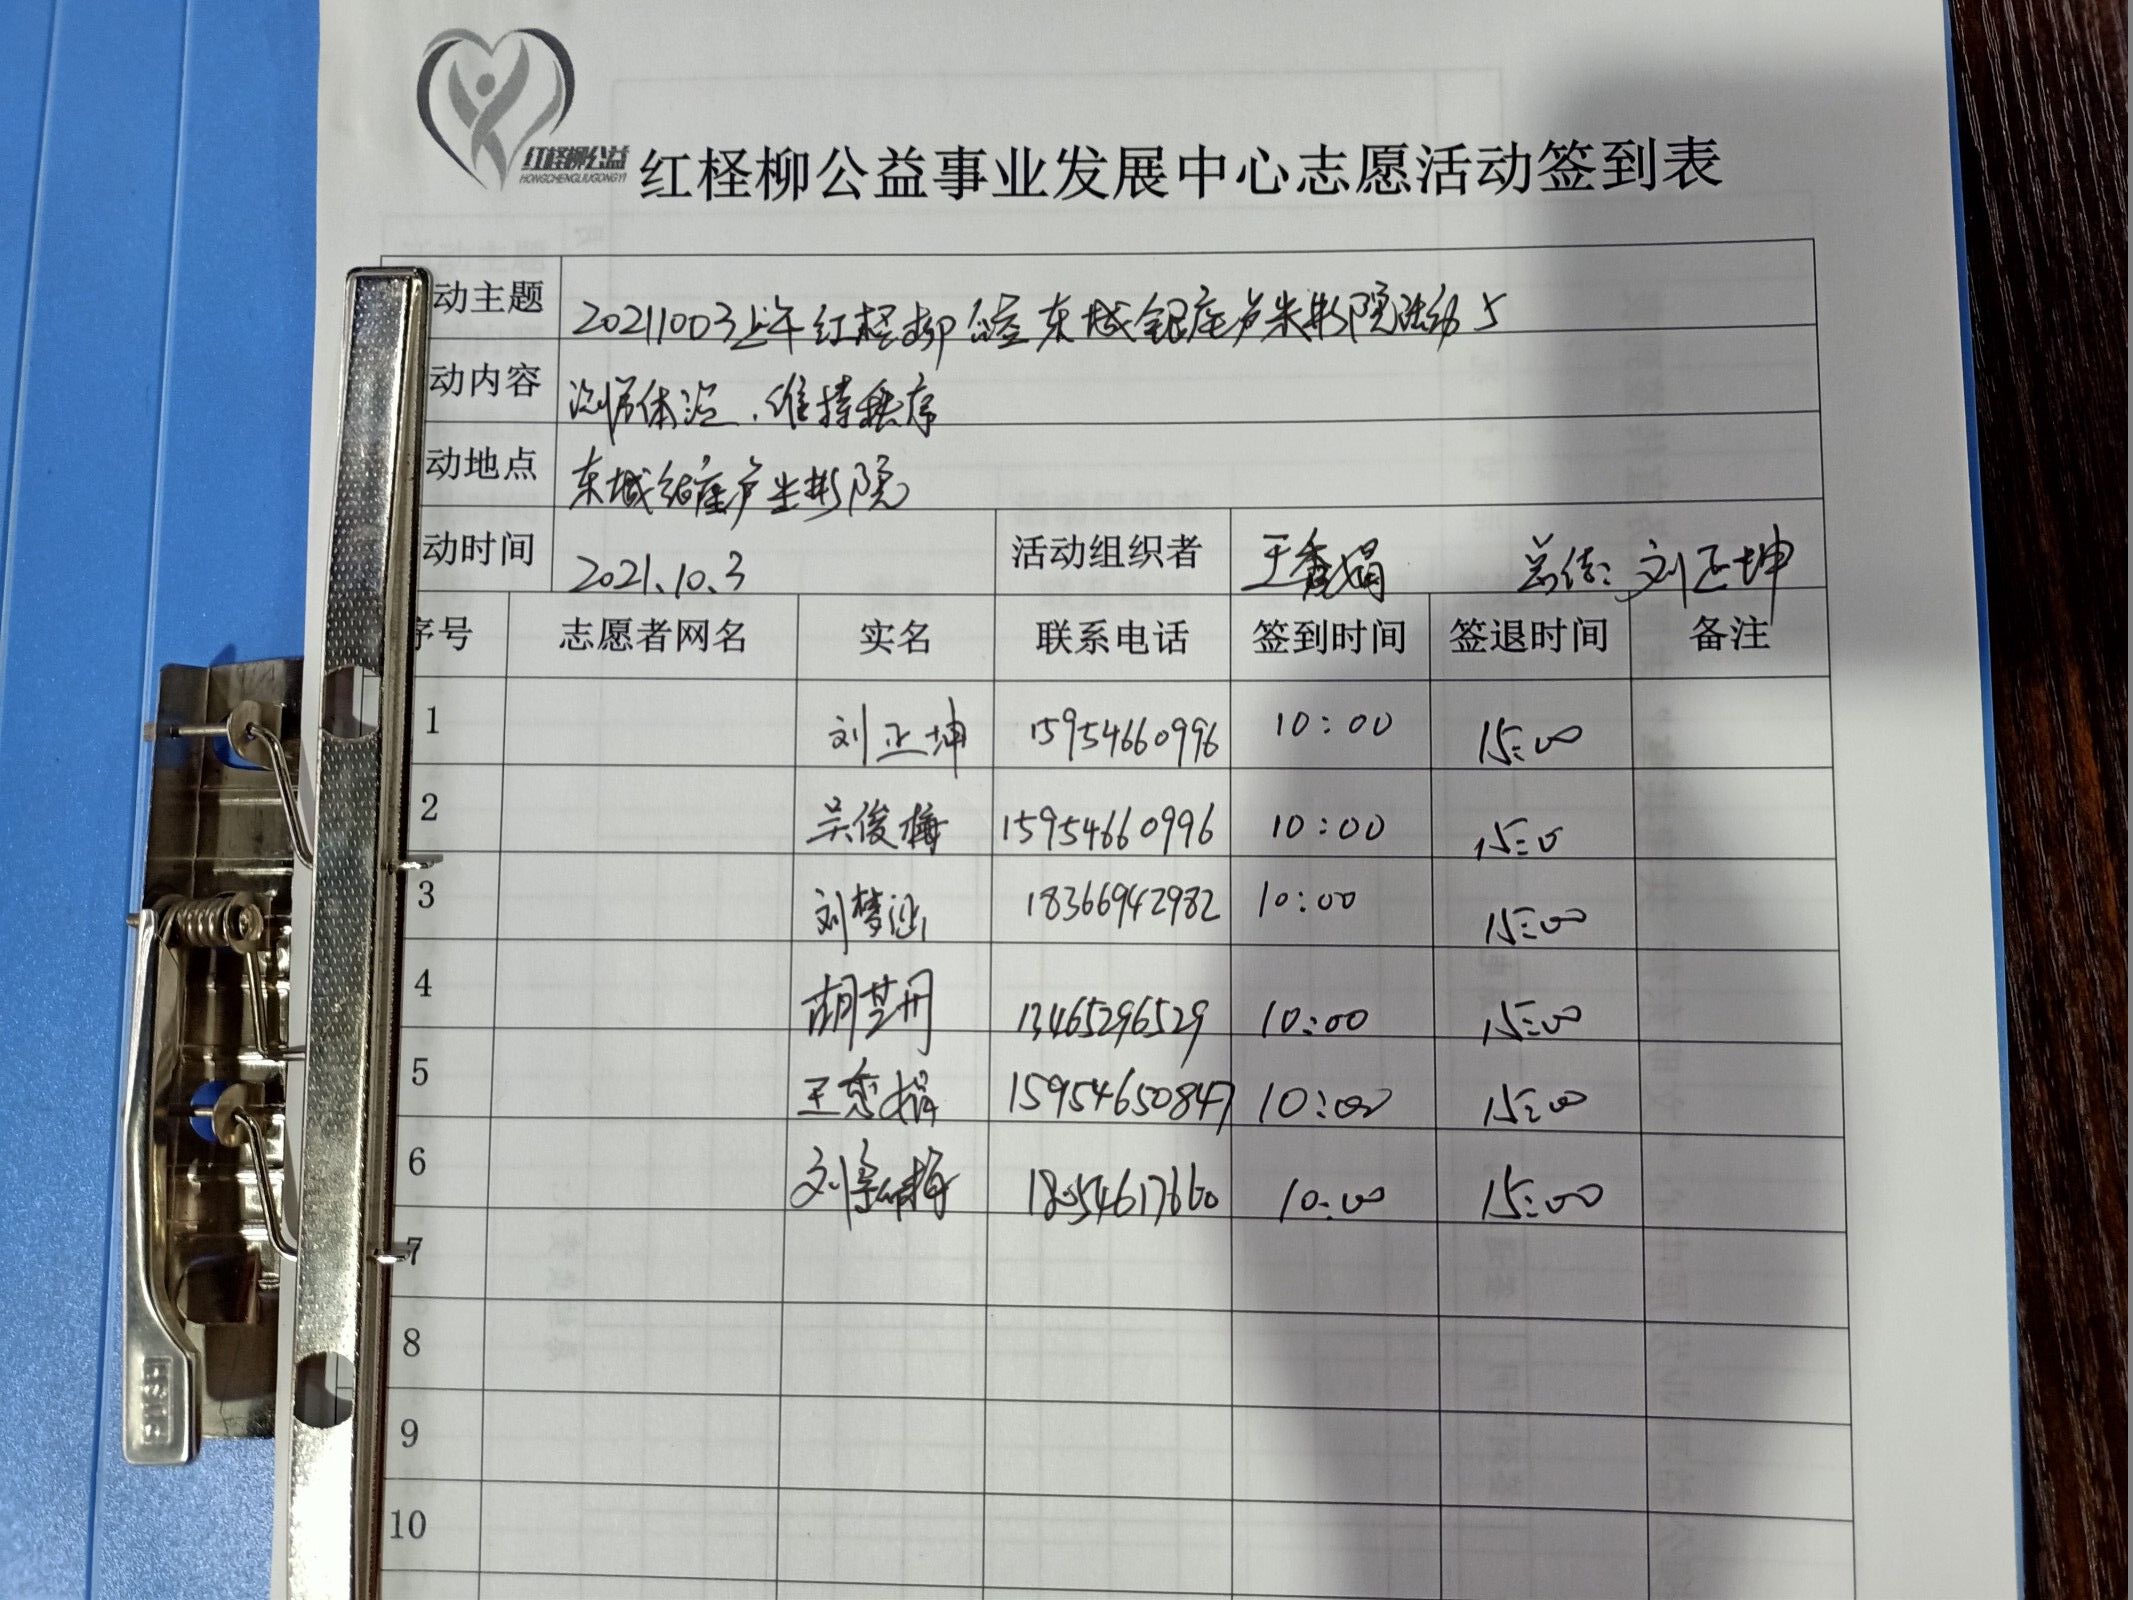 红柽柳公益
HONGCHENGLIUGONGYI
红柽柳公益事业发展中心志愿活动签到表
动主题 20211003上午红柽柳公益东城银座卢米影院活动5
动内容 测量体温、维持秩序
动地点 东城银座卢米影院
动时间 2021.10.3 活动组织者 王秀娟 总结：刘正坤
序号 志愿者网名 实名 联系电话 签到时间 签退时间 备注
1 刘正坤 15954660996 10:00 15:00
2 吴俊梅 15954660996 10:00 15:0
3 刘梦涵 18366942982 10:00 15:00
4 胡芝丹 13465296529 10:00 15:00
5 王秀娟 15954650847 10:00 15:00
6 刘 梅 18054617660 10:00 15:00
7
8
9
10